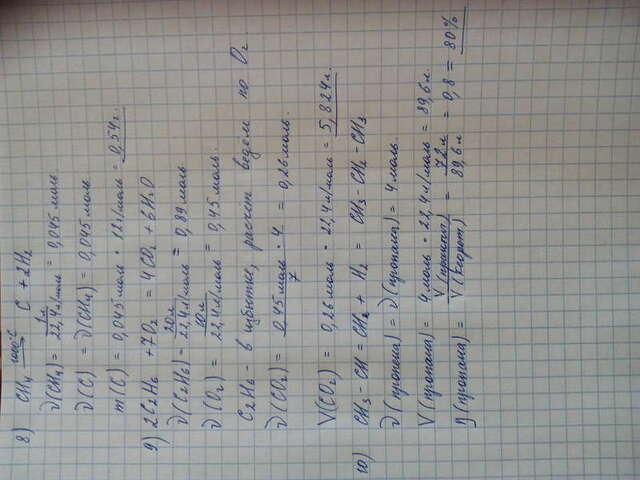 8) CH₄ →(1000°C) C + 2H₂
ν(CH₄) = 1л / 22,4 л/моль = 0,045 моль
ν(C) = ν(CH₄) = 0,045 моль
m(C) = 0,045 моль · 12 г/моль = 0,54 г.
9) 2C₂H₆ + 7O₂ = 4CO₂ + 6H₂O
ν(C₂H₆) = 20л / 22,4 л/моль = 0,89 моль
ν(O₂) = 10л / 22,4 л/моль = 0,45 моль.
C₂H₆ - в избытке, расчет ведем по O₂
ν(CO₂) = 0,45 моль · 4 / 7 = 0,26 моль.
V(CO₂) = 0,26 моль · 22,4 л/моль = 5,824 л.
10) CH₃ - CH = CH₂ + H₂ = CH₃ - CH₂ - CH₃
ν(пропена) = ν(пропана) = 4 моль.
V(пропана) = 4 моль · 22,4 л/моль = 89,6 л.
η(пропана) = V(практ) / V(теорет) = 72 л / 89,6 л = 0,8 = 80%